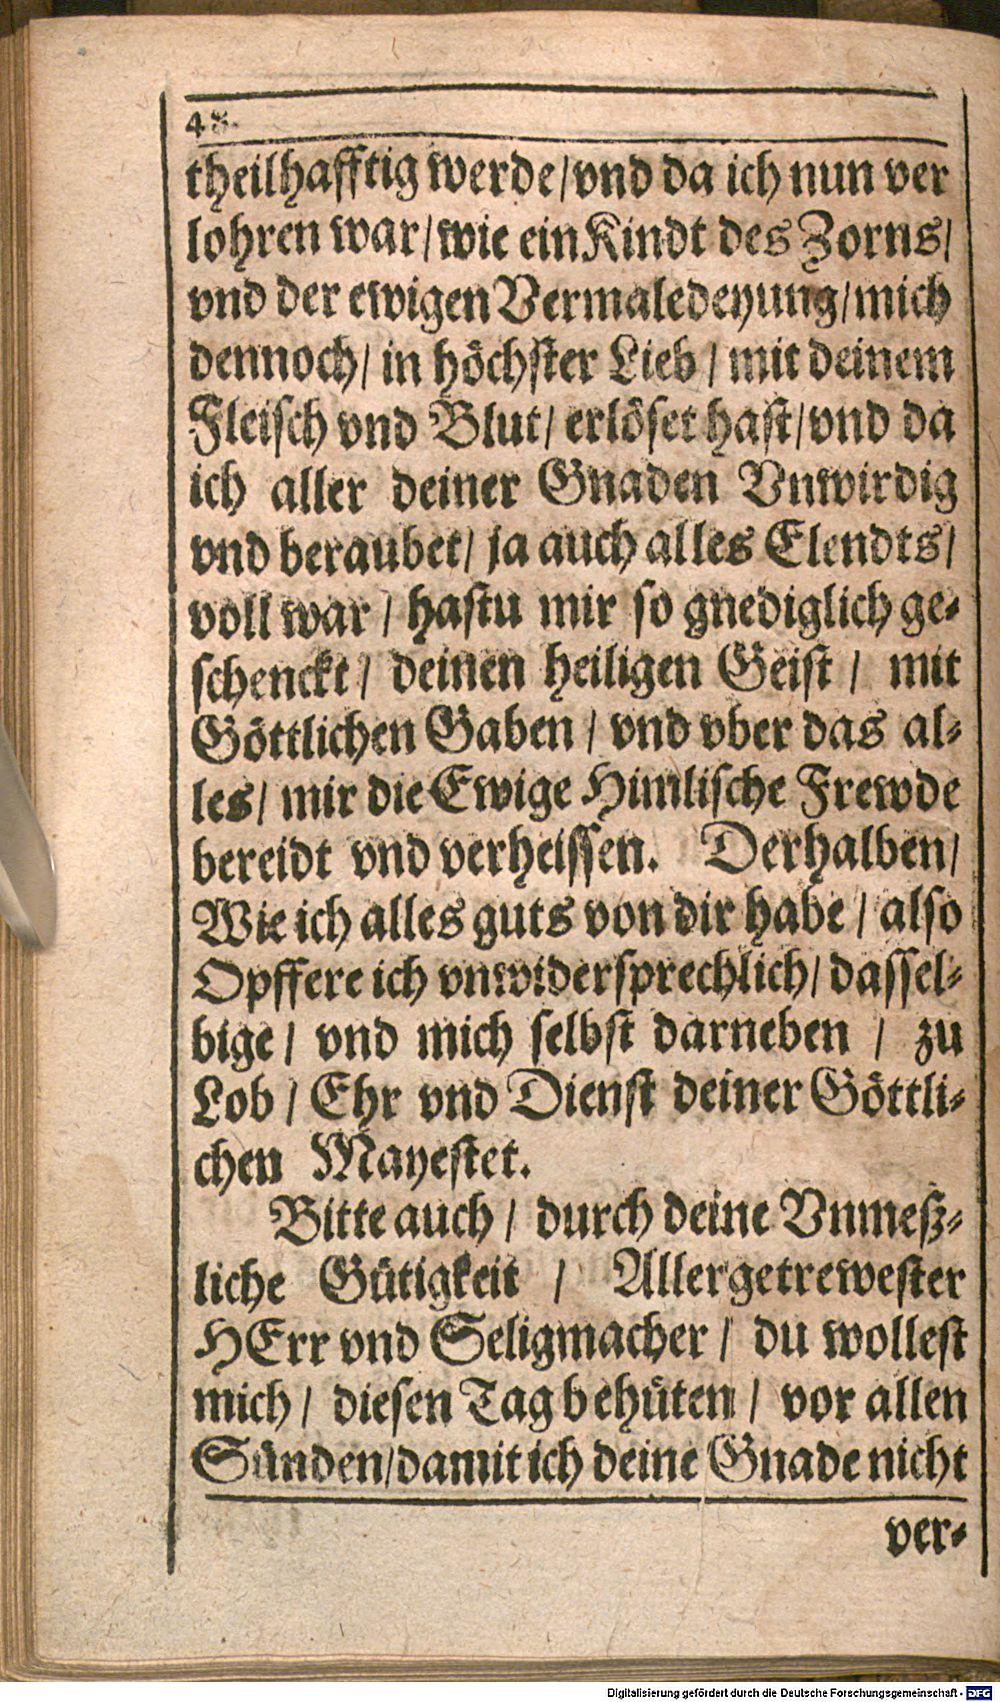 48.
theilhafftig werde/vnd da ich nun ver
lohren war/wie ein Kindt des Zorns/
vnd der ewigen Vermaledeyung/mich
dennoch/ in höchster Lieb / mit deinem
Fleisch vnd Blut/ erlöset hast/vnd da
ich aller deiner Gnaden Vnwirdig
vnd beraubet/ ja auch alles Elendts/
voll war / hastu mir so gnediglich ge-
schenckt / deinen heiligen Geist / mit
Göttlichen Gaben / vnd vber das al-
les/ mir die Ewige Himlische Frewde
bereidt vnd verheissen. Derhalben/
Wie ich alles guts von dir habe / also
Opffere ich vnwidersprechlich/ dassel-
bige / vnd mich selbst darneben / zu
Lob / Ehr vnd Dienst deiner Göttli-
chen Mayestet.
Bitte auch / durch deine Vnmeß-
liche Gütigkeit / Allergetrewester
HErr vnd Seligmacher / du wollest
mich / diesen Tag behüten / vor allen
Sünden/damit ich deine Gnade nicht
ver-
Digitalisierung gefördert durch die Deutsche Forschungsgemeinschaft - DFG